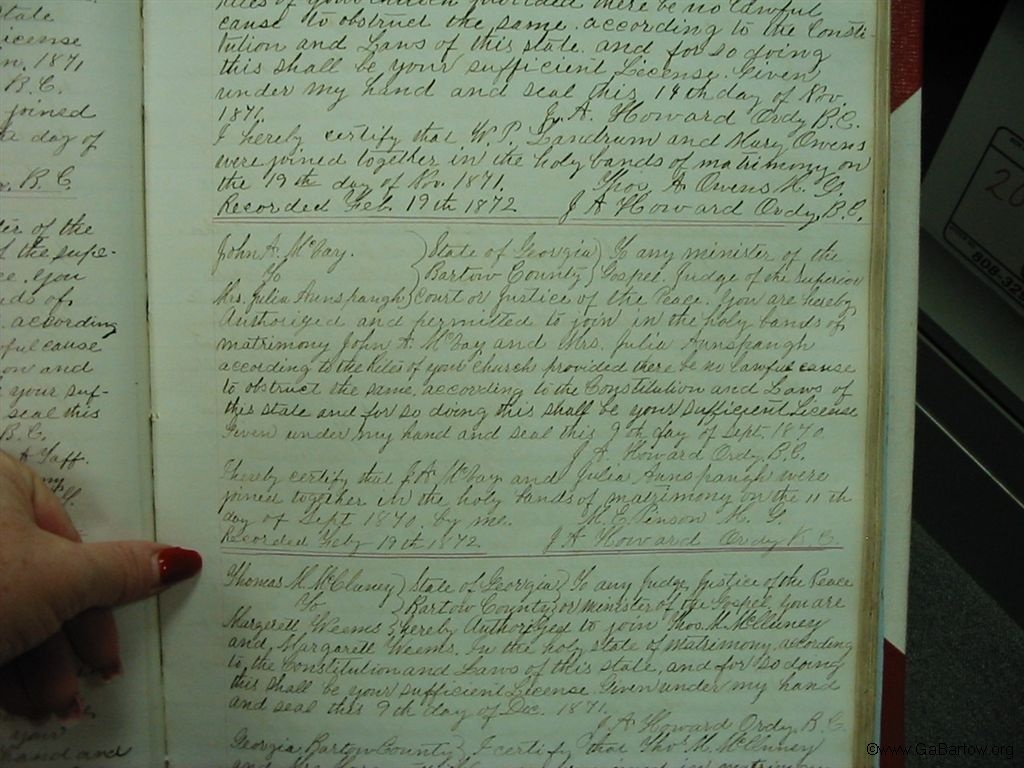 tate
icense
n, 1871
B. C.
joined
a day of
B. C.
ler of the
f the supe-
ce. you
nds of
according
ful cause
on and
your suf-
seal this
B. C.
A Taff.
your
hand and
Rites of your church provided there be no lawful
cause to obstruct the same. according to the Consti-
tution and Laws of this state. and for so doing
this shall be your sufficient License. Given
under my hand and seal this 14th day of Nov.
1871. J. A. Howard Ordy B. C.
I hereby certify that W. P. Landrum and Mary Owens
were joined together in the holy bands of matrimony on
the 19th day of Nov. 1871. Thos. A Owens M. G.
Recorded Feb. 19th 1872 J A Howard Ordy, B. C.
John A. McVay. ) State of Georgia ) To any minister of the
To ) Bartow County ) Gospel, Judge of the Superior
Mrs. Julia Aunspaugh ) court or Justice of the Peace. You are hereby
Authorized and permitted to join in the holy bands of
matrimony John A. McVay and Mrs. Julia Aunspaugh
according to the Rites of your church provided there be no lawful cause
to obstruct the same. according to the Constitution and Laws of
this state and for so doing this shall be your sufficient License
Given under my hand and seal this 9th day of Sept. 1870
J. A. Howard Ordy B. C.
I hereby certify that J. A. McVay and Julia Aunspaugh were
joined together in the holy bands of matrimony on the 11th
day of Sept 1870. by me. M. E. Pinson M. G.
Recorded Feby 19th 1872 J A Howard Ordy B. C.
Thomas M. McCluney ) State of Georgia ) To any Judge, Justice of the Peace
To ) Bartow County ) or minister of the Gospel, you are
Margerett Weems ) hereby Authorized to join Thos. M. McCluney
and Margarett Weems. In the holy state of matrimony, according
to, the Constitution and Laws of this state, and for so doing
this shall be your sufficient License. Given under my hand
and seal this 9th day of Dec. 1871.
J A Howard Ordy B. C.
Georgia Bartow County ) I certify that Thos. M. McCluney
20
808-32
©www.GaBartow.org